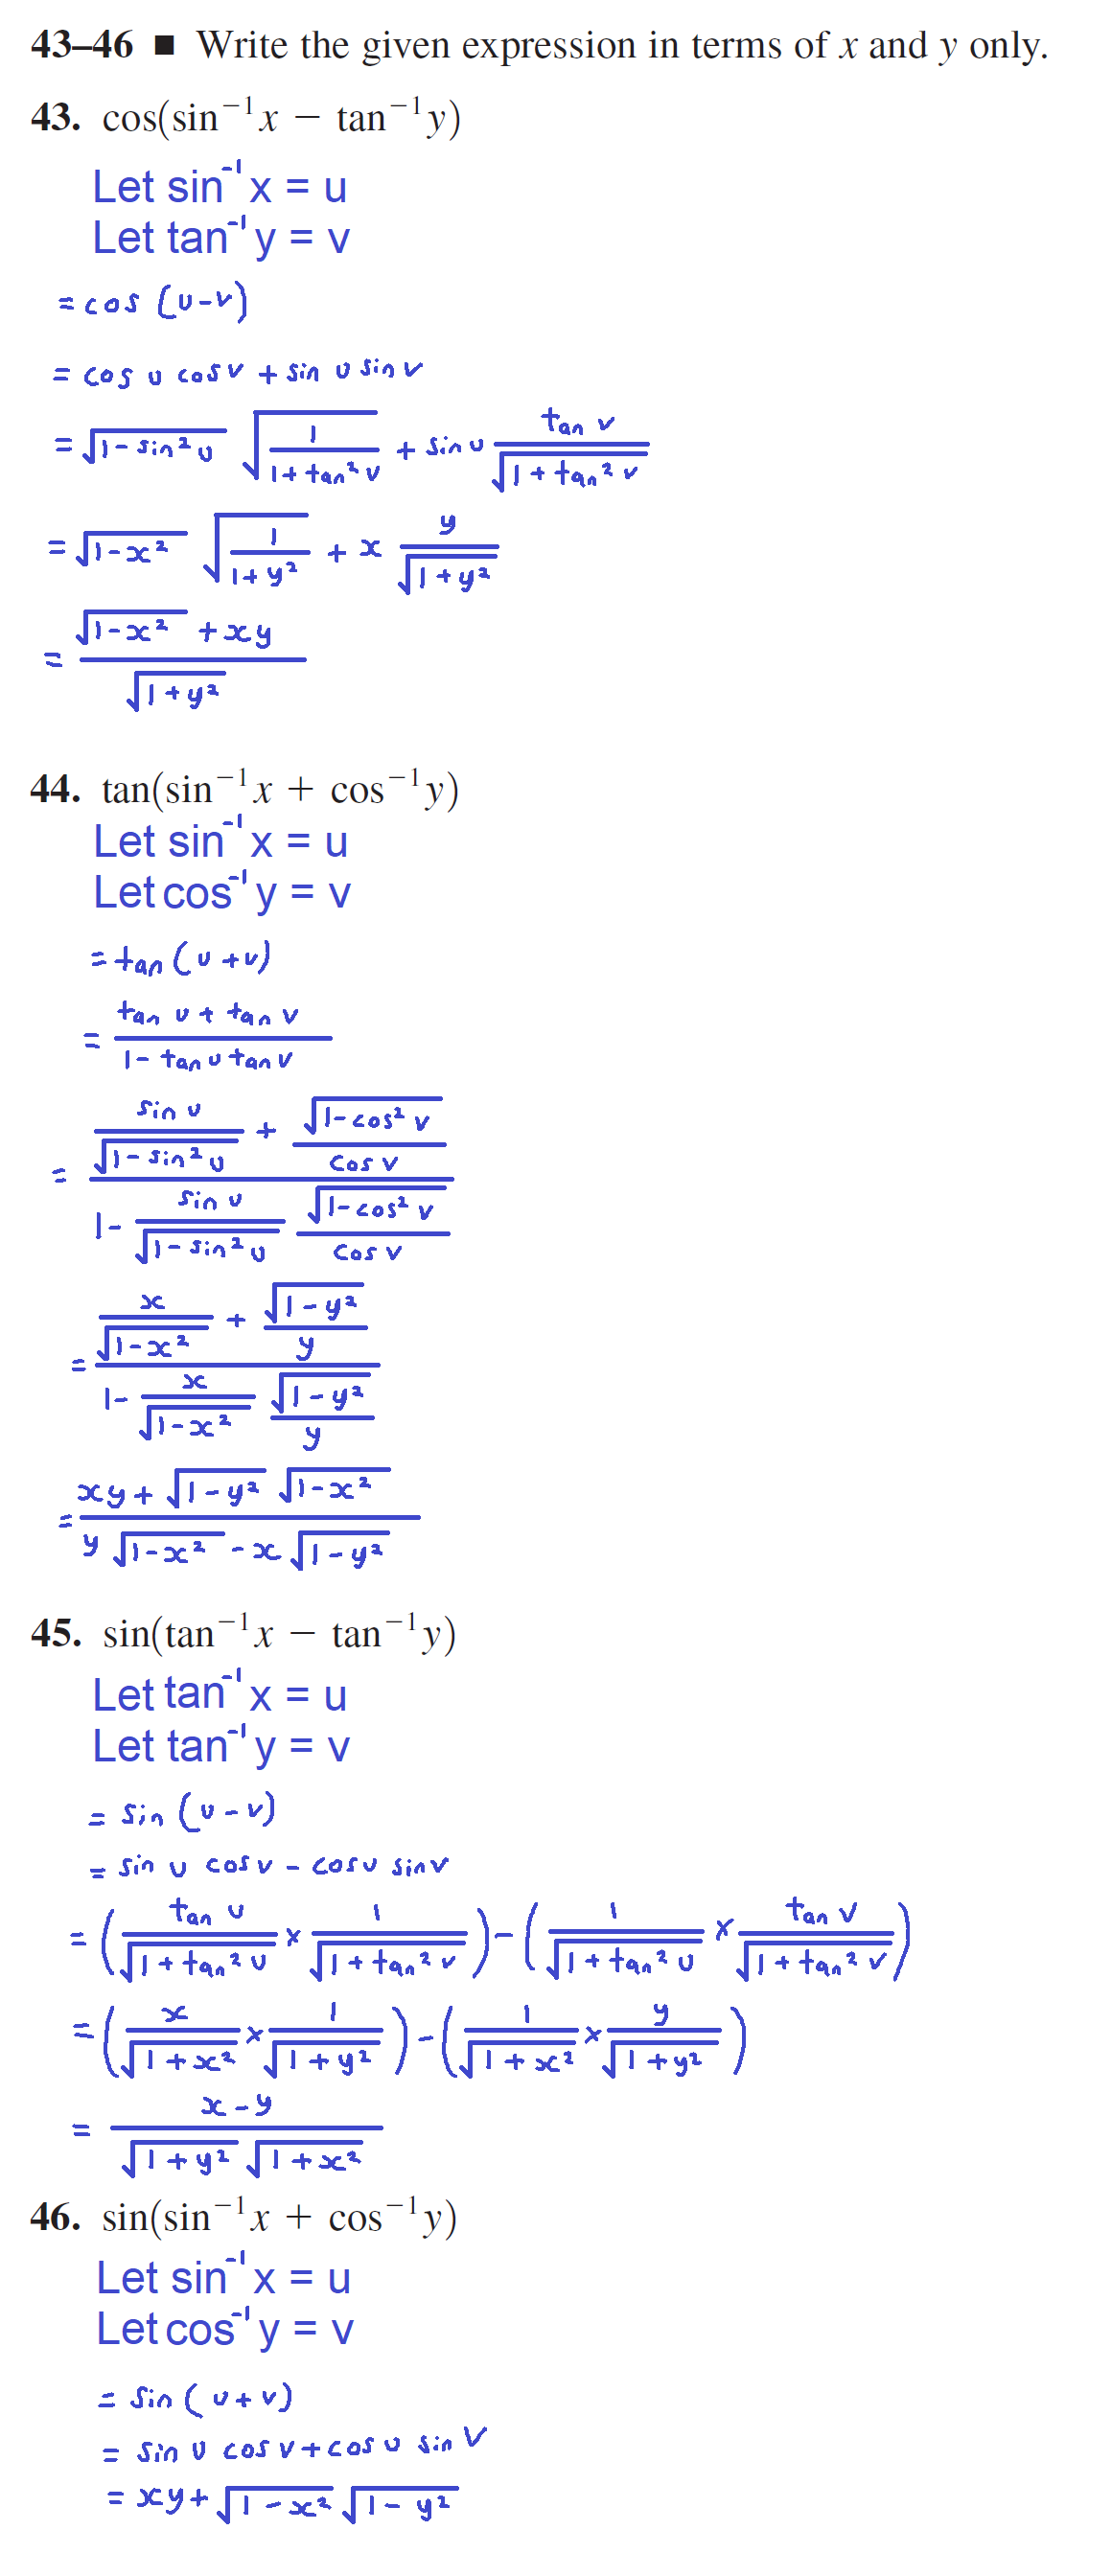 43–46 ■ Write the given expression in terms of x and y only.
43. cos(sin⁻¹x − tan⁻¹y)
Let sin⁻¹x = u
Let tan⁻¹y = v
= cos (u-v)
= cos u cos v + sin u sin v
= √(1 - sin² u) √(1/(1 + tan² v)) + sin u (tan v)/√(1 + tan² v)
= √(1-x²) √(1/(1+y²)) + x y/√(1+y²)
= (√(1-x²) + xy)/√(1+y²)
44. tan(sin⁻¹x + cos⁻¹y)
Let sin⁻¹x = u
Let cos⁻¹y = v
= tan (u + v)
= (tan u + tan v)/(1 - tan u tan v)
= (sin u/√(1 - sin² u) + √(1 - cos² v)/cos v)/(1 - sin u/√(1 - sin² u) √(1 - cos² v)/cos v)
= (x/√(1-x²) + √(1-y²)/y)/(1 - x/√(1-x²) √(1-y²)/y)
= (xy + √(1-y²) √(1-x²))/(y √(1-x²) - x √(1-y²))
45. sin(tan⁻¹x − tan⁻¹y)
Let tan⁻¹x = u
Let tan⁻¹y = v
= sin (u - v)
= sin u cos v - cos u sin v
= (tan u/√(1 + tan² u) × 1/√(1 + tan² v)) - (1/√(1 + tan² u) × tan v/√(1 + tan² v))
= (x/√(1+x²) × 1/√(1+y²)) - (1/√(1+x²) × y/√(1+y²))
= (x - y)/(√(1+y²) √(1+x²))
46. sin(sin⁻¹x + cos⁻¹y)
Let sin⁻¹x = u
Let cos⁻¹y = v
= sin (u + v)
= sin u cos v + cos u sin v
= xy + √(1-x²) √(1-y²)